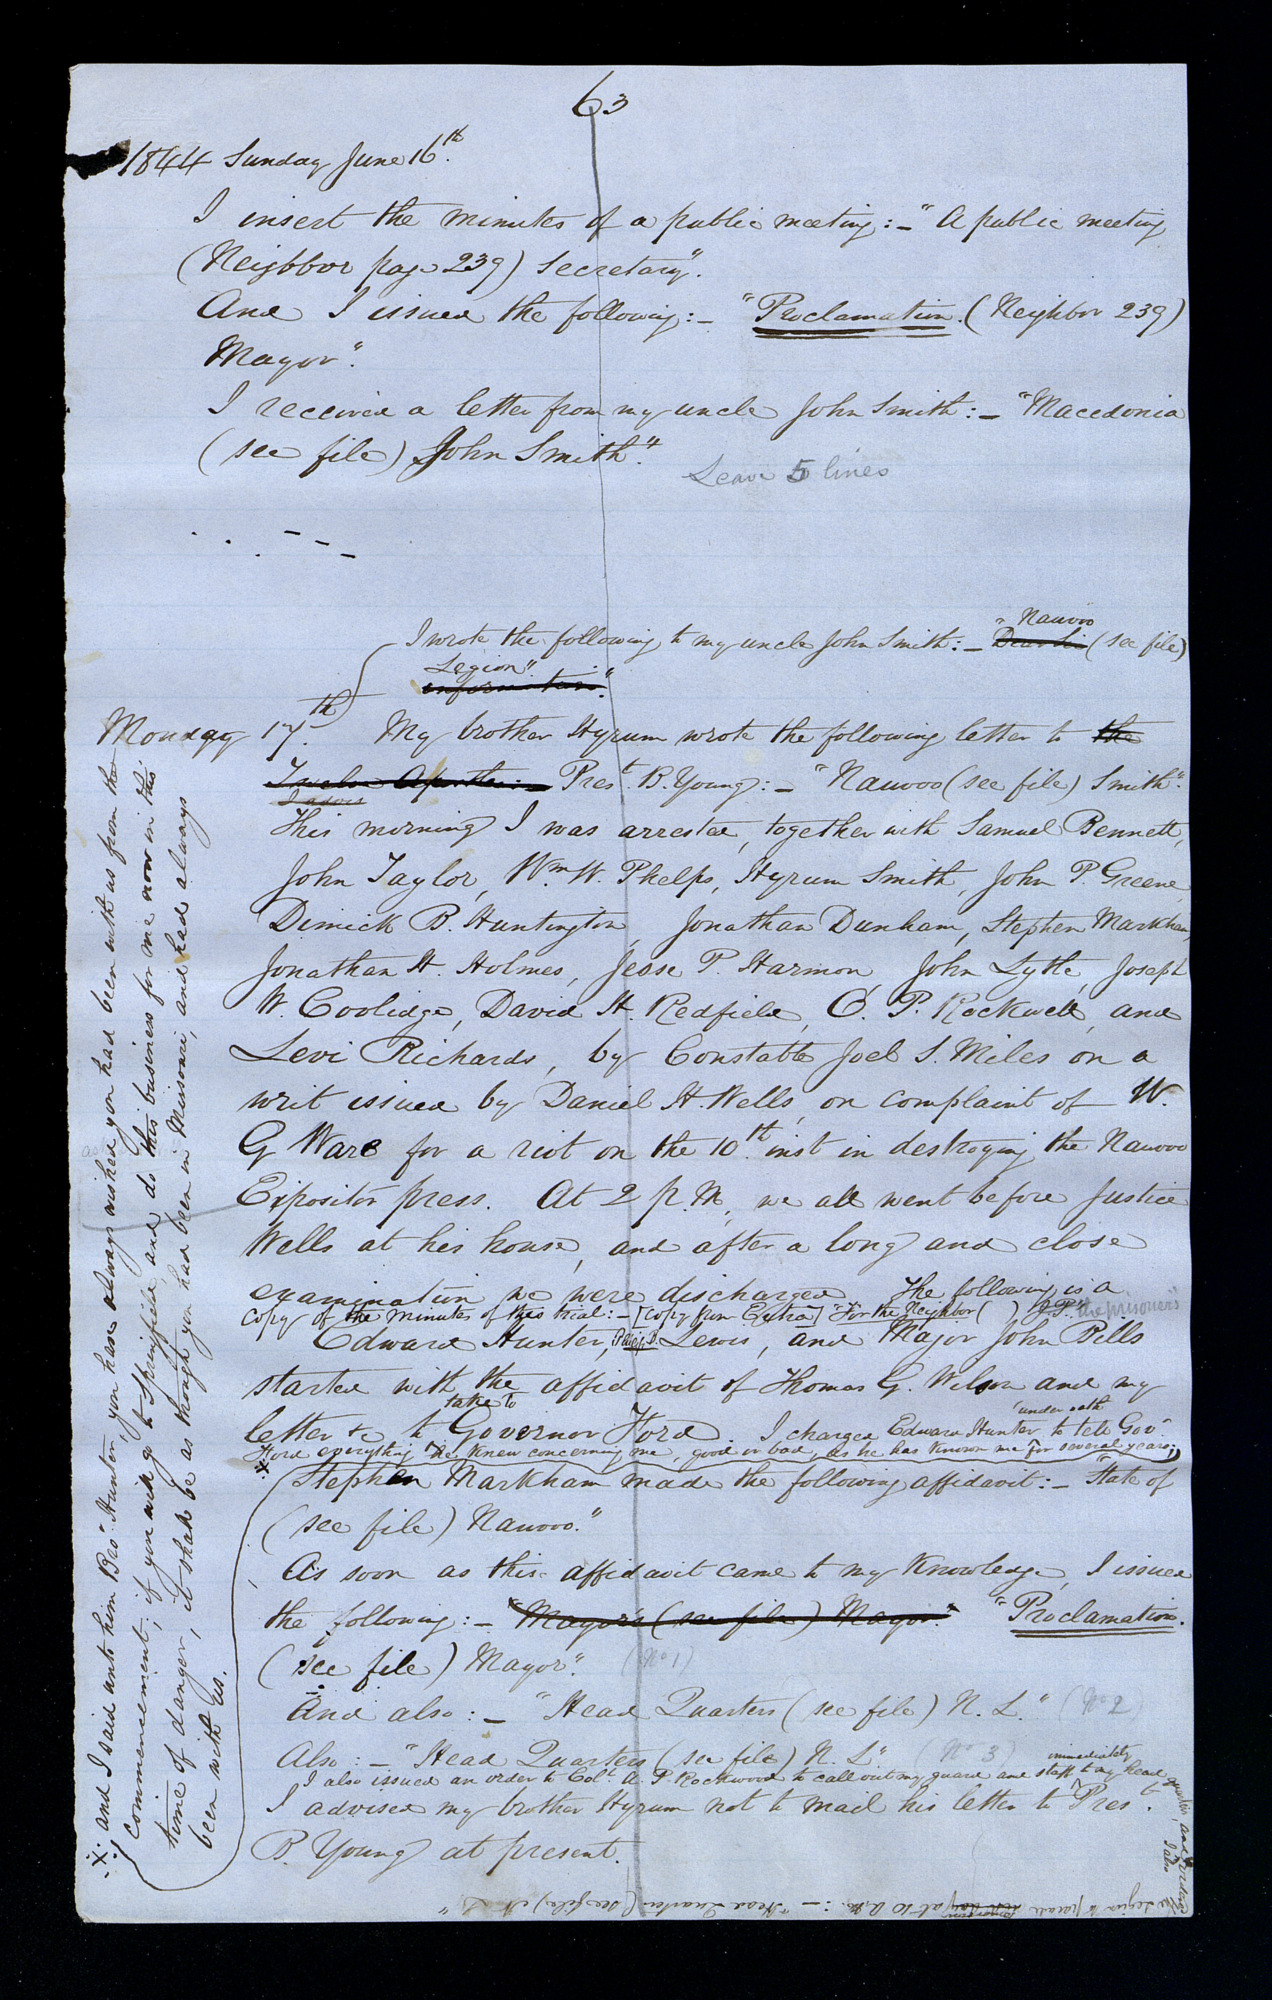 63
1844 Sunday June 16th.
I insert the minutes of a public meeting:– "A public meeting
(Neighbor page 239) Secretary".
And I issued the following:– "Proclamation. (Neighbor 239)
Mayor".
I received a letter from my uncle John Smith:– "Macedonia
(see file) John Smith."
Leave 5 lines
I wrote the following to my uncle John Smith:– "Nauvoo Dear Sir (see file)
Legion".
information."
Monday 17.th My brother Hyrum wrote the following letter to the
Twelve Apostles:– Prest. B. Young:– "Nauvoo (see file) Smith".
This morning I was arrested, together with Samuel Bennett,
John Taylor, Wm. W. Phelps, Hyrum Smith, John P. Greene,
Dimick B. Huntington, Jonathan Dunham, Stephen Markham,
Jonathan H. Holmes, Jesse P. Harmon, John Lytle, Joseph
W. Coolidge, David H. Redfield, O. P. Rockwell, and
Levi Richards, by Constable Joel S. Miles on a
writ issued by Daniel H. Wells, on complaint of W.
G Ware for a riot on the 10th. inst in destroying the Nauvoo
Expositor press. At 2 p. M, we all went before Justice
Wells at his house, and after a long and close
examination we were discharged. The following is a
copy of the minutes of this trial:– [copy from Extra] "For the Neighbor ( ) J.P." the prisoners
Edward Hunter, Philip B. Lewis, and Major John Bills
started with the affidavit of Thomas G. Wilson and my
letter &c to take to Governor Ford. I charged Edward Hunter under oath to tell Gov.
Ford everything he knew concerning me, good or bad, as he has known me for several years;
Stephen Markham made the following affidavit:– "State of
(see file) Nauvoo."
As soon as this affidavit came to my knowledge, I issued
the following:– "Mayors (see file) Mayor." "Proclamation.
(see file) Mayor". (No 1)
And also:– "Head Quarters (see file) N. L." (No 2)
Also:– "Head Quarters (see file) N. L" (No 3)
I also issued an order to Col. A. P. Rockwood to call out my guard and staff immediately to my head quarters, and
I advised my brother Hyrum not to mail his letter to Prest.
B. Young at present.
the Legion to parade at 10 A.M.:– "Head Quarters (see file) N. L"
and I said unto him Bro. Hunter, you have always wished you had been with us from the
commencement, if you will go to Springfield and do this business for me now in this
time of danger, it shall be as though you had been in Missouri, and had always
been with us.